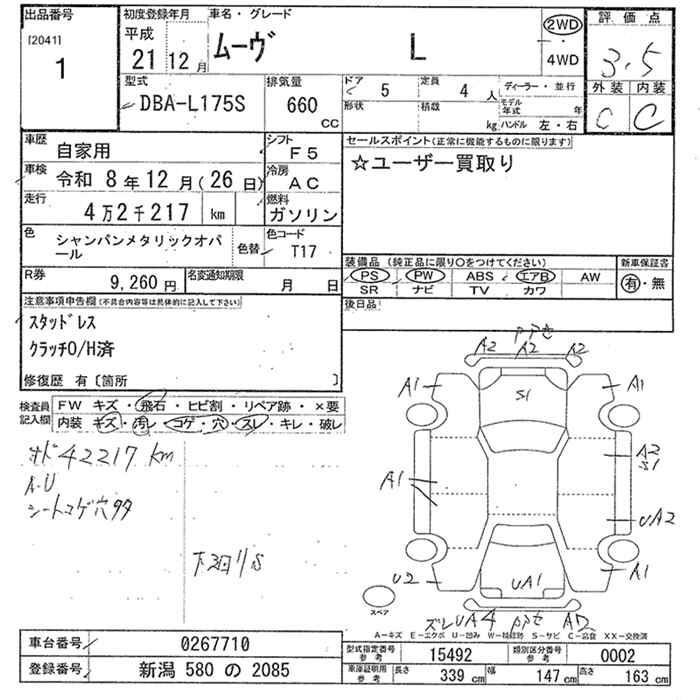 出品番号
[2041]
1
初度登録年月
平成
21 12月
車名・グレード
ムーヴ L
2WD
4WD
評価点
3.5
外装 内装
C C
型式
DBA-L175S
排気量
660
cc
ドア 5
定員 4 人
ディーラー・並行
形状
積載 kg
モデル年式 年
ハンドル 左・右
車歴
自家用
シフト
F5
車検
令和 8年12月(26日)
冷房
AC
走行
4万2千217 km
燃料
ガソリン
色
シャンパンメタリックオパール
色替
色コード
T17
R券
9,260円
名変通知期限
月 日
セールスポイント(正常に機能するものに限ります)
☆ユーザー買取り
装備品 (純正品に限り○をつけてください)
PS PW ABS エアB AW
SR ナビ TV カワ
新車保証書
有・無
後日品
注意事項申告欄(不具合内容等は具体的に記入して下さい)
スタッドレス
クラッチO/H済
修復歴 有〔箇所 〕
検査員記入欄
FW キズ・飛石・ヒビ割・リペア跡・×要
内装 キズ・汚レ・コゲ・穴・スレ・キレ・破レ
オド42217 km
A.U
シートコゲ穴タタ
下回りS
A2 A2 A2
A1 S1 A1
A1 A2
S1
UA2
U2 UA1 A1
UA4 A2
スペア
A−キズ E−エクボ U−凹み W−補修跡 S−サビ C−腐食 XX−交換済
車台番号 0267710
登録番号 新潟 580 の 2085
型式指定番号 参考 15492
類別区分番号 参考 0002
車庫証明用 参考 長さ 339 cm 幅 147 cm 高さ 163 cm